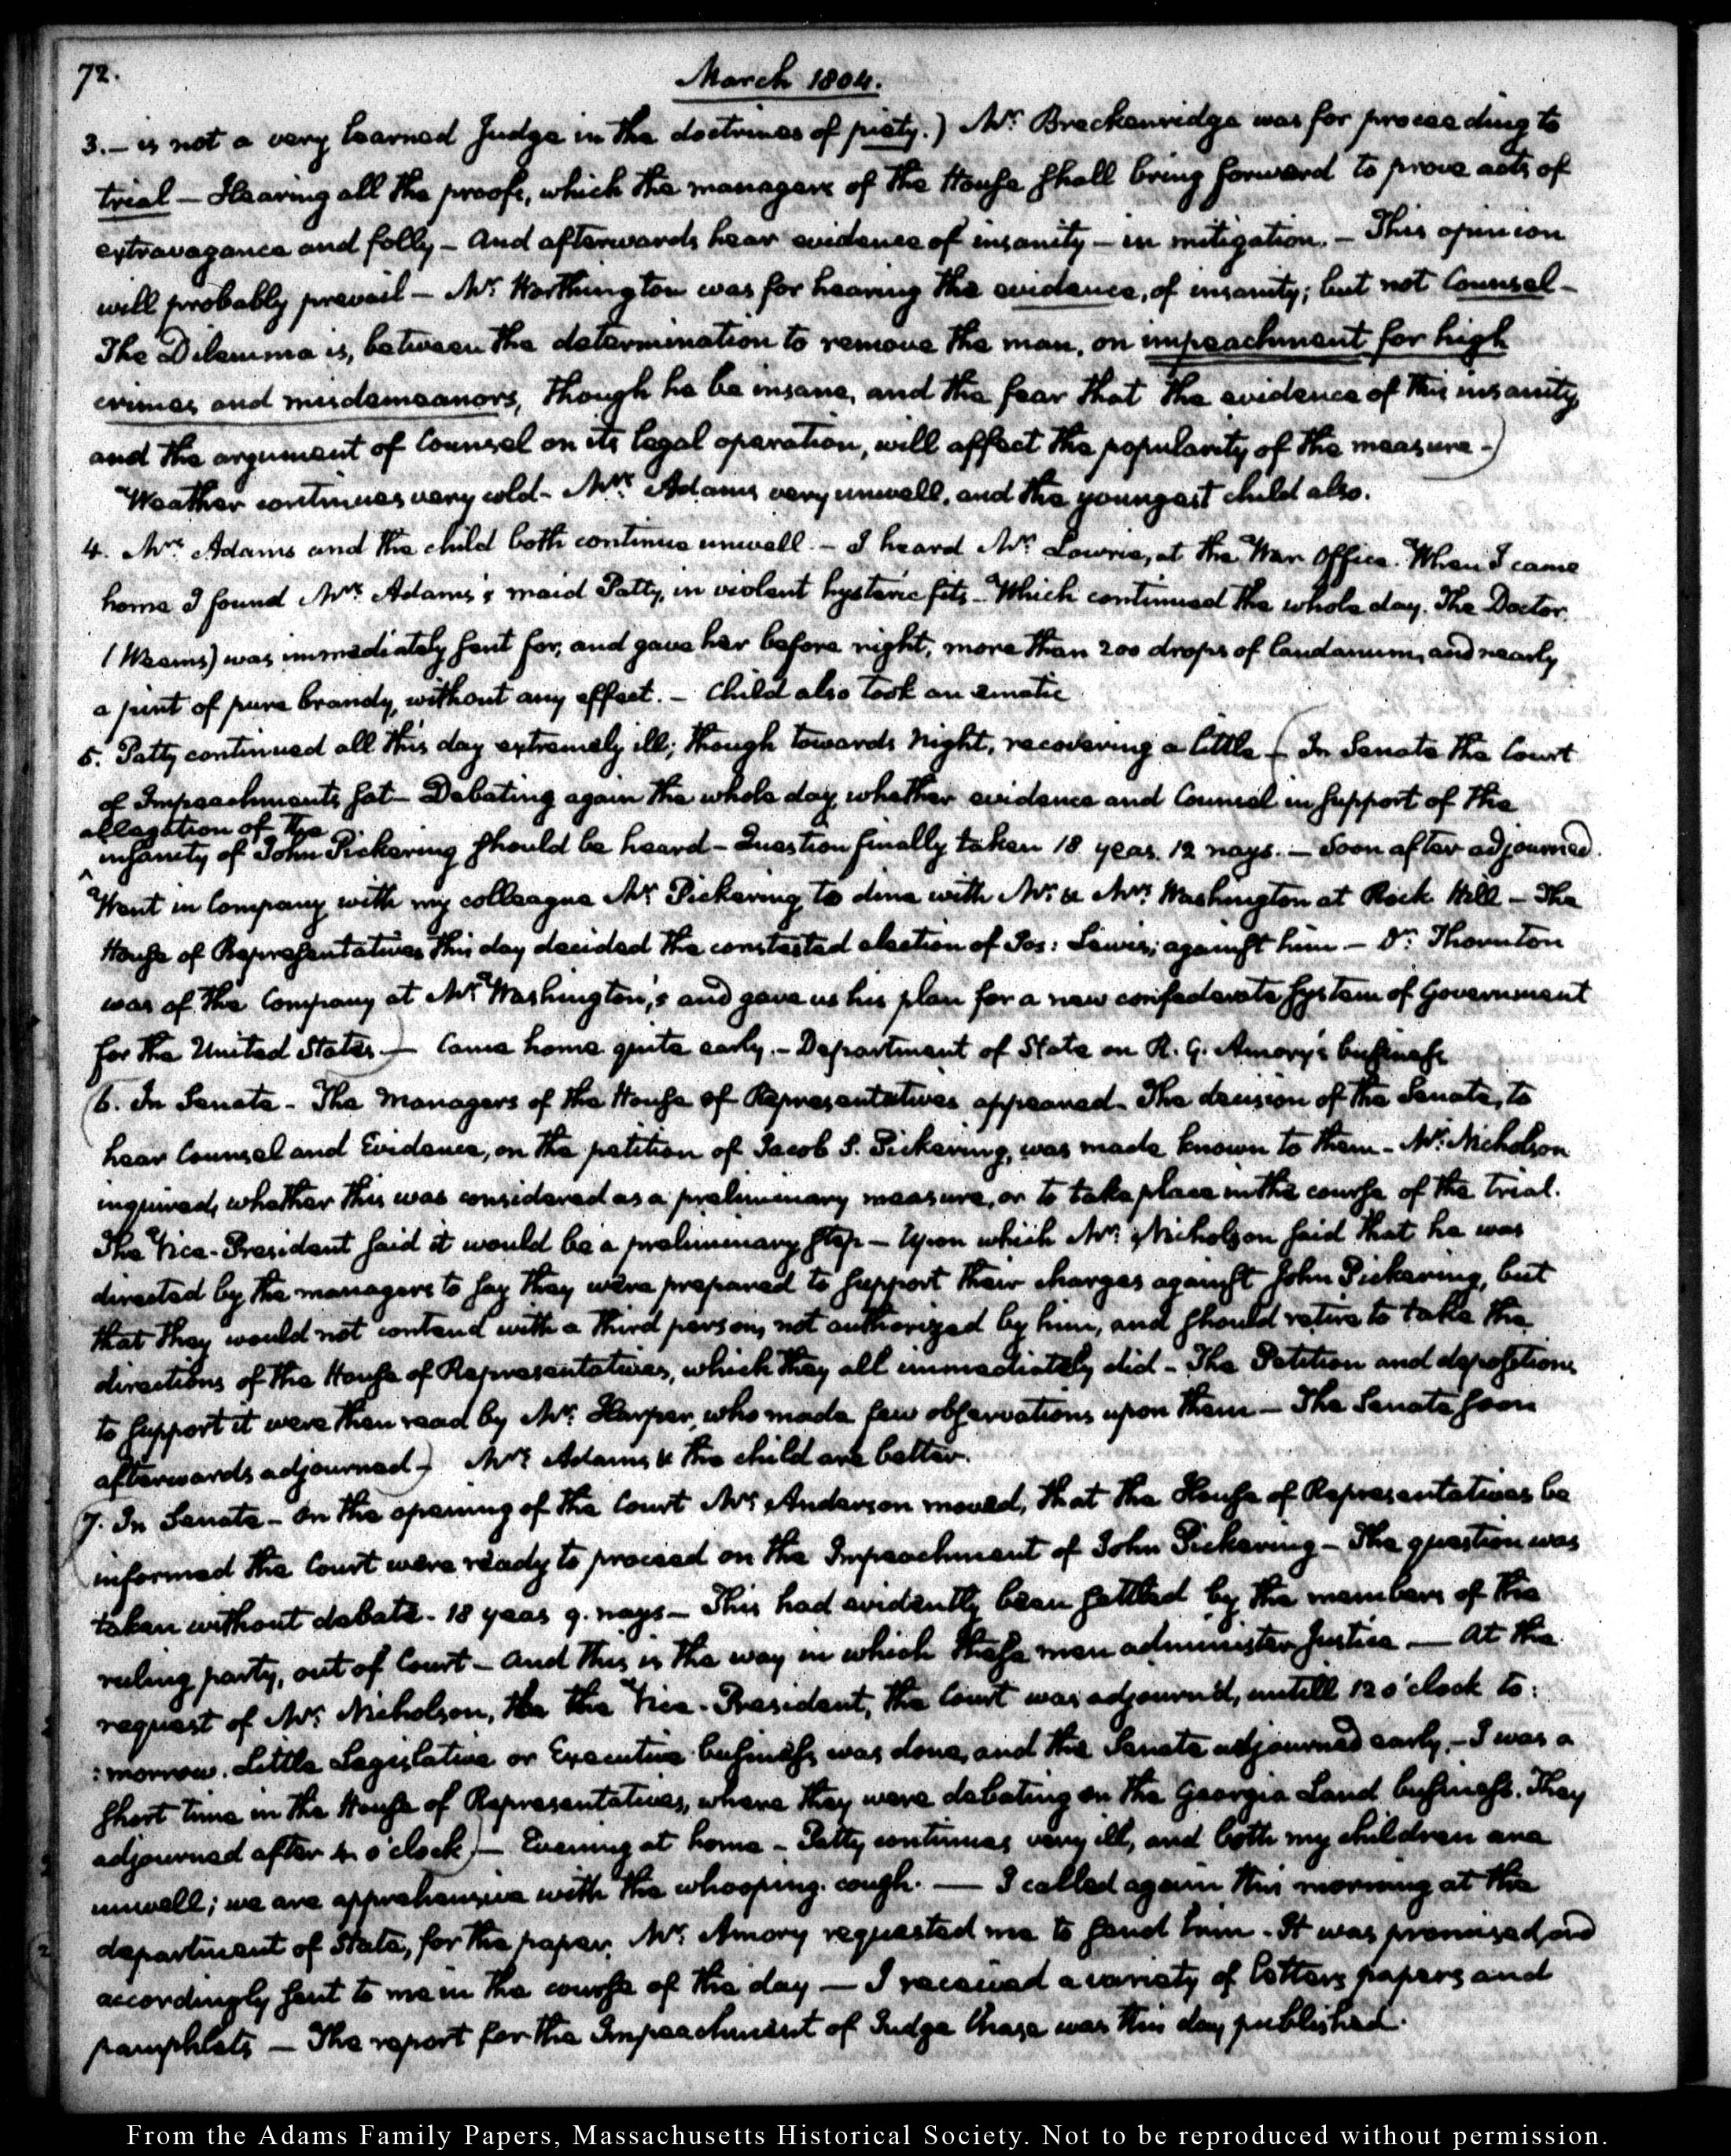 72.
March 1804.
3. — is not a very learned Judge in the doctrines of piety.) Mr. Breckenridge was for proceeding to
trial — Hearing all the proofs, which the managers of the House shall bring forward to prove acts of
extravagance and folly — And afterwards hear evidence of insanity — in mitigation. — This opinion
will probably prevail — Mr. Worthington was for hearing the evidence, of insanity; but not Counsel —
The Dilemma is, between the determination to remove the man, on impeachment for high
crimes and misdemeanors, though he be insane, and the fear that the evidence of this insanity,
and the argument of Counsel on its legal operation, will affect the popularity of the measure —)
Weather continues very cold — Mrs. Adams very unwell, and the youngest child also.
4. Mrs. Adams and the child both continue unwell. — I heard Mr. Lowrie, at the War Office. When I came
home I found Mrs. Adams's maid Patty, in violent hysteric fits — Which continued the whole day. The Doctor
(Weems) was immediately sent for; and gave her before night, more than 200 drops of laudanum, and nearly
a pint of pure brandy, without any effect. — Child also took an emetic
5. Patty continued all this day extremely ill; though towards night, recovering a little — (In Senate the Court
of Impeachments sat — Debating again the whole day, whether evidence and Counsel in support of the
allegation of the
insanity of John Pickering should be heard — Question finally taken 18 yeas. 12 nays. — Soon after adjourned.
Went in Company with my colleague Mr. Pickering to dine with Mr. & Mrs. Washington at Rock Hill — The
House of Representatives this day decided the contested election of Jos: Lewis; against him — Dr. Thornton
was of the Company at Mr. Washington's and gave us his plan for a new confederate system of Government
for the United States.) — Came home quite early. — Department of State on R. G. Amory's business
(6. In Senate — The Managers of the House of Representatives appeared — The decision of the Senate, to
hear Counsel and Evidence, on the petition of Jacob S. Pickering, was made known to them — Mr. Nicholson
inquired, whether this was considered as a preliminary measure, or to take place in the course of the trial.
The Vice-President said it would be a preliminary step — Upon which Mr. Nicholson said that he was
directed by the managers to say they were prepared to support their charges against John Pickering, but
that they would not contend with a third person, not authorized by him, and should retire to take the
directions of the House of Representatives, which they all immediately did — The Petition and depositions
to support it were then read by Mr. Harper, who made few observations upon them — The Senate soon
afterwards adjourned —) Mrs. Adams & the child are better.
(7. In Senate — On the opening of the Court Mr. Anderson moved, that the House of Representatives be
informed the Court were ready to proceed on the Impeachment of John Pickering — The question was
taken without debate — 18 yeas 9. nays — This had evidently been settled by the members of the
ruling party, out of Court — And this is the way in which these men administer Justice. — At the
request of Mr. Nicholson, the the Vice-President, the Court was adjourn'd, untill 12 o'clock to:
:morrow. Little Legislative or Executive business was done, and the Senate adjourned early. — I was a
short time in the House of Representatives, where they were debating on the Georgia Land business. They
adjourned after 4 o'clock) — Evening at home — Patty continues very ill, and both my children are
unwell; we are apprehensive with the whooping-cough. — I called again this morning at the
department of State, for the paper, Mr. Amory requested me to send him. It was promised, and
accordingly sent to me in the course of the day — I received a variety of letters papers and
pamphlets — The report for the Impeachment of Judge Chase was this day published.
From the Adams Family Papers, Massachusetts Historical Society. Not to be reproduced without permission.